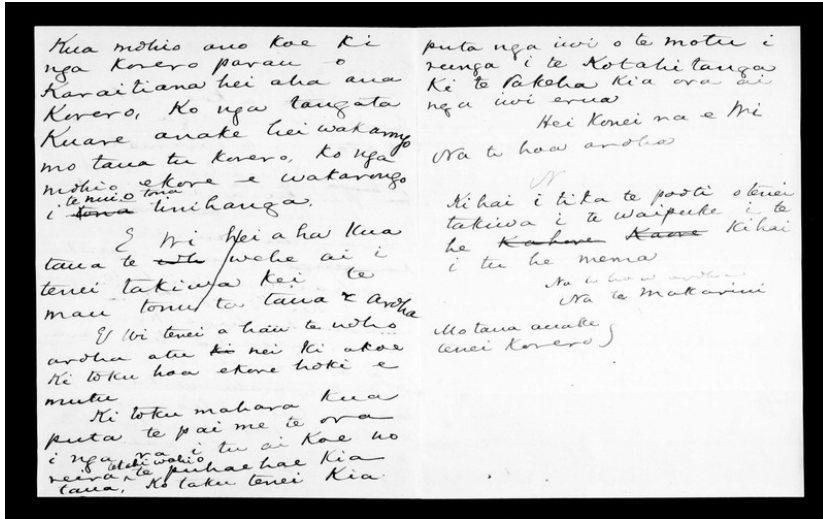 Kua mohio ano koe ki
nga Korero parau o
Karaitiana hei aha ana
Korero, Ko nga tangata
Kuare anake hei wakarongo
mo taua tu Korero, Ko nga
mohio ekore e wakarongo
te nui o tona
i tona tinihanga.
E Wi Hei aha Kua
taua te wehe ai i
tenei takiwa Kei te
mau tonu ta taua aroha
E Wi tenei a hau te noho
aroha atu ki nei Ki akoe
Ki toku hoa ekore hoki e
mutu
Ki toku mahara Kua
puta te pai me te ora
i nga ra i tu ai Koe no
reira te puhaehae Kia
taua, Ko taku tenei Kia
puta nga iwi o te motu i
runga i te Kotahitanga
Ki te Pakeha Kia ora ai
nga iwi erua
Hei Konei na e Wi
Na to hoa aroha
N
Kihai i tika te pooti o tenei
takiwa i te waipuke i te
he Kahore Kaore Kihai
i tu he mema
Na to hoa aroha
Na te Makarini
Mo taua anake
tenei Korero